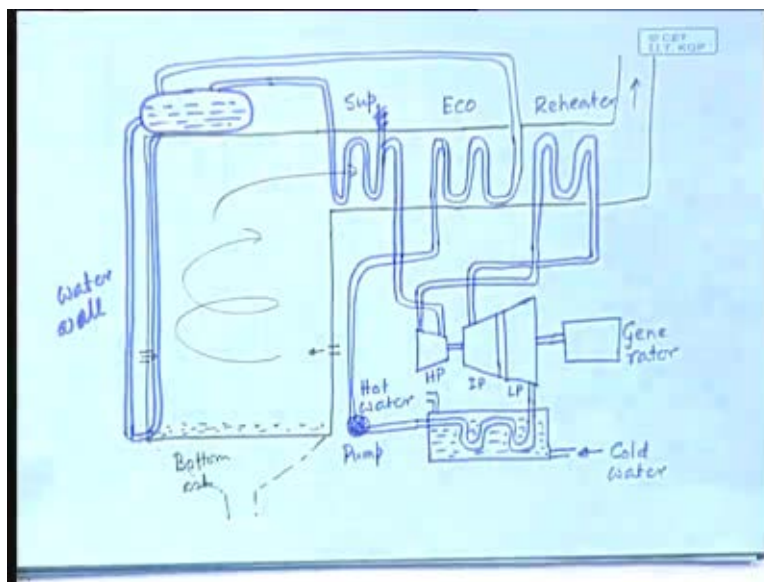 © CET
I.I.T. KGP
Sup
Eco
Reheater
water
wall
Gene
rator
HP
IP
LP
Hot
water
Pump
Cold
water
Bottom
ash